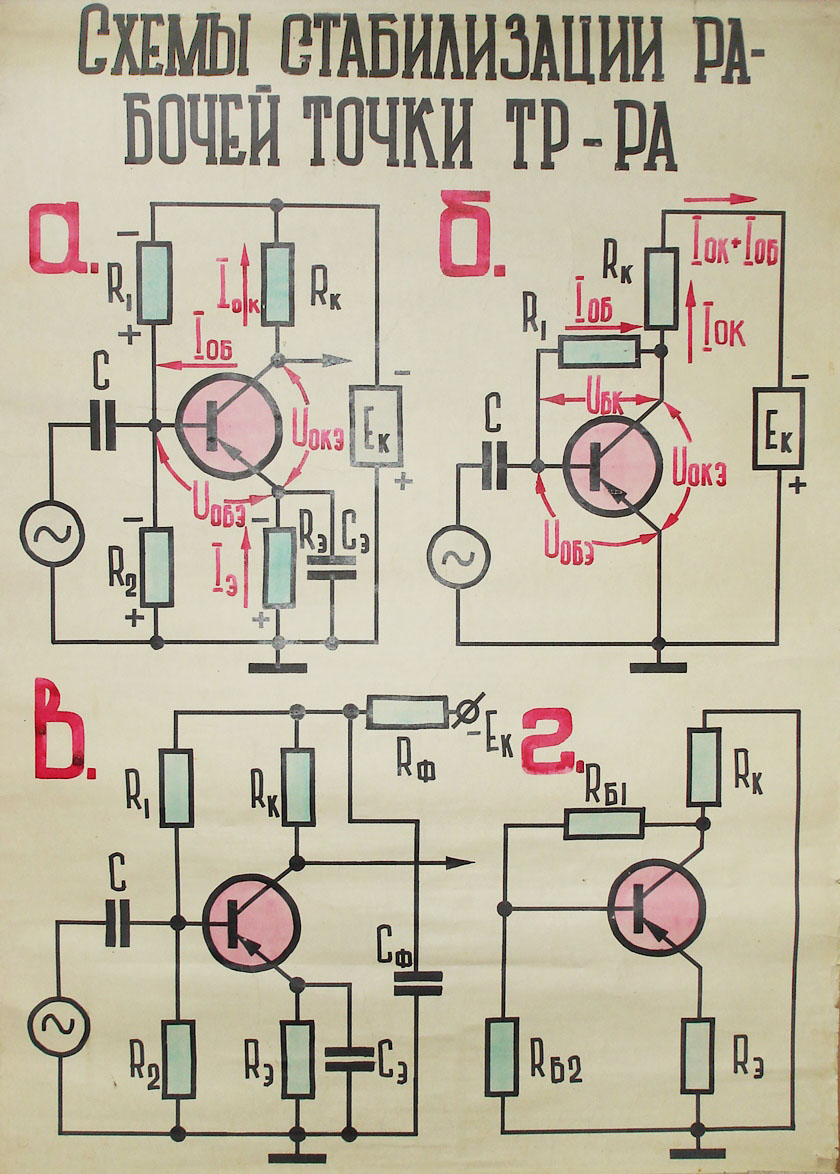 СХЕМЫ СТАБИЛИЗАЦИИ РА-
БОЧЕЙ ТОЧКИ ТР-РА
а.
− R1 +
Iок
Rк
Iоб
C
Uокэ
− Eк +
Uобэ
− R2 +
Iэ
− Rэ +
Cэ
б.
Iок+Iоб
Rк
Iок
R1
Iоб
Uбк
C
Uокэ
− Eк +
Uобэ
в.
Rф
-Eк
R1
Rк
C
Cф
R2
Rэ
Cэ
г.
Rб1
Rк
Rб2
Rэ